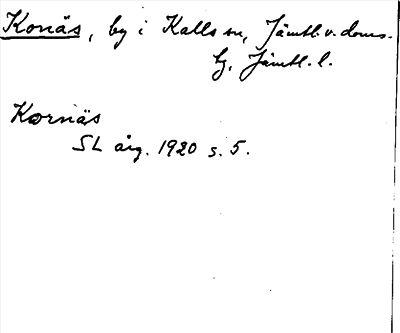 Konäs, by i Kalls sn, Jämtl. v. doms.
tg, Jämtl. l.
Kornäs
SL årg. 1920 s. 5.